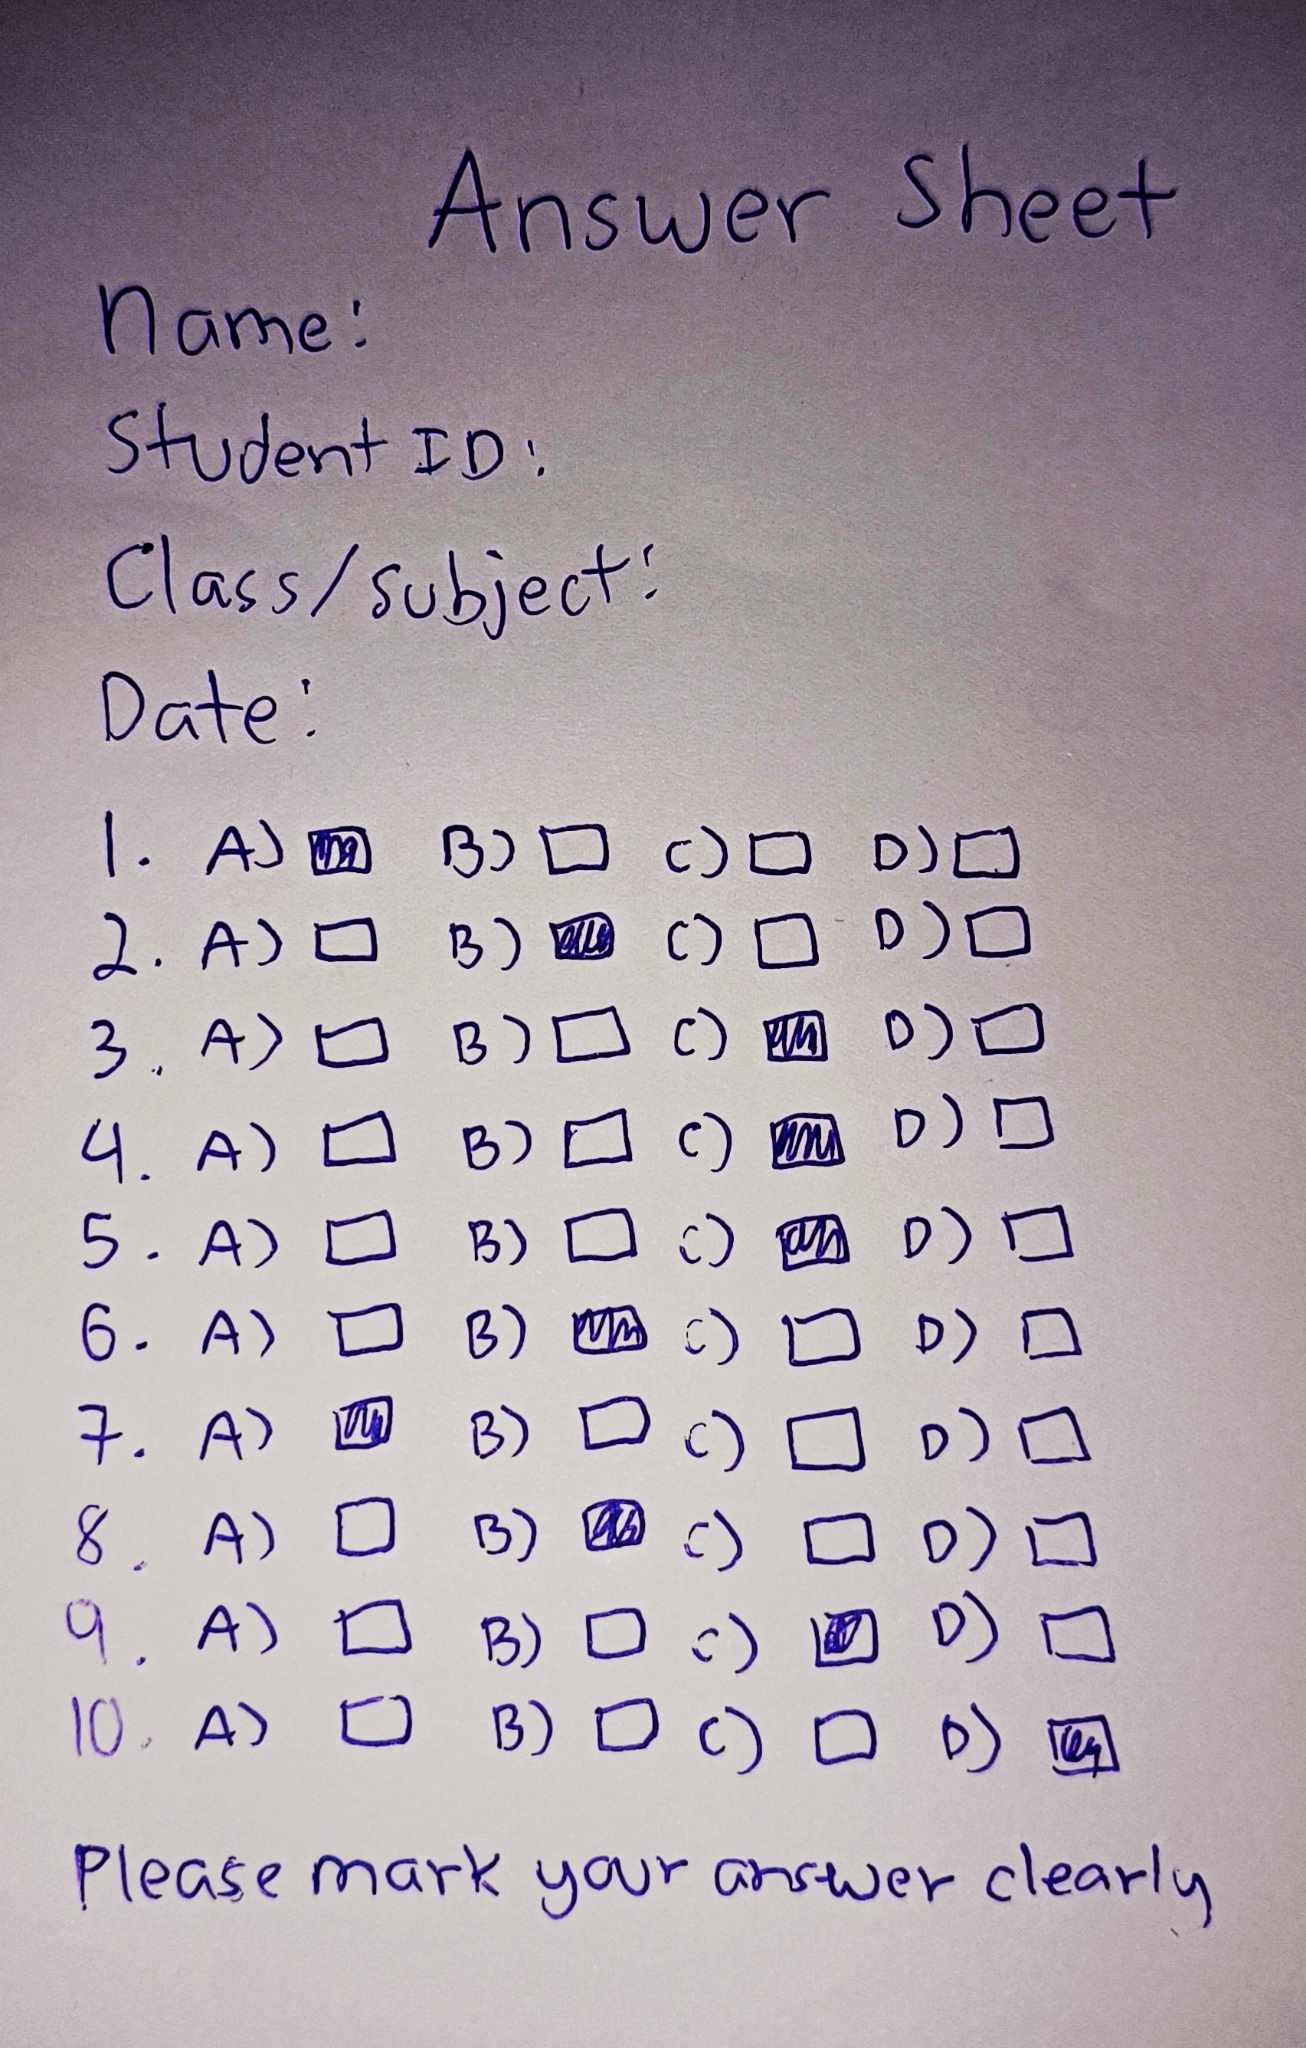 Answer Sheet
Name:
Student ID:
Class/subject:
Date:
1. A) ■ B) □ C) □ D) □
2. A) □ B) ■ C) □ D) □
3. A) □ B) □ C) ■ D) □
4. A) □ B) □ C) ■ D) □
5. A) □ B) □ C) ■ D) □
6. A) □ B) ■ C) □ D) □
7. A) ■ B) □ C) □ D) □
8. A) □ B) ■ C) □ D) □
9. A) □ B) □ C) ■ D) □
10. A) □ B) □ C) □ D) ■
Please mark your answer clearly